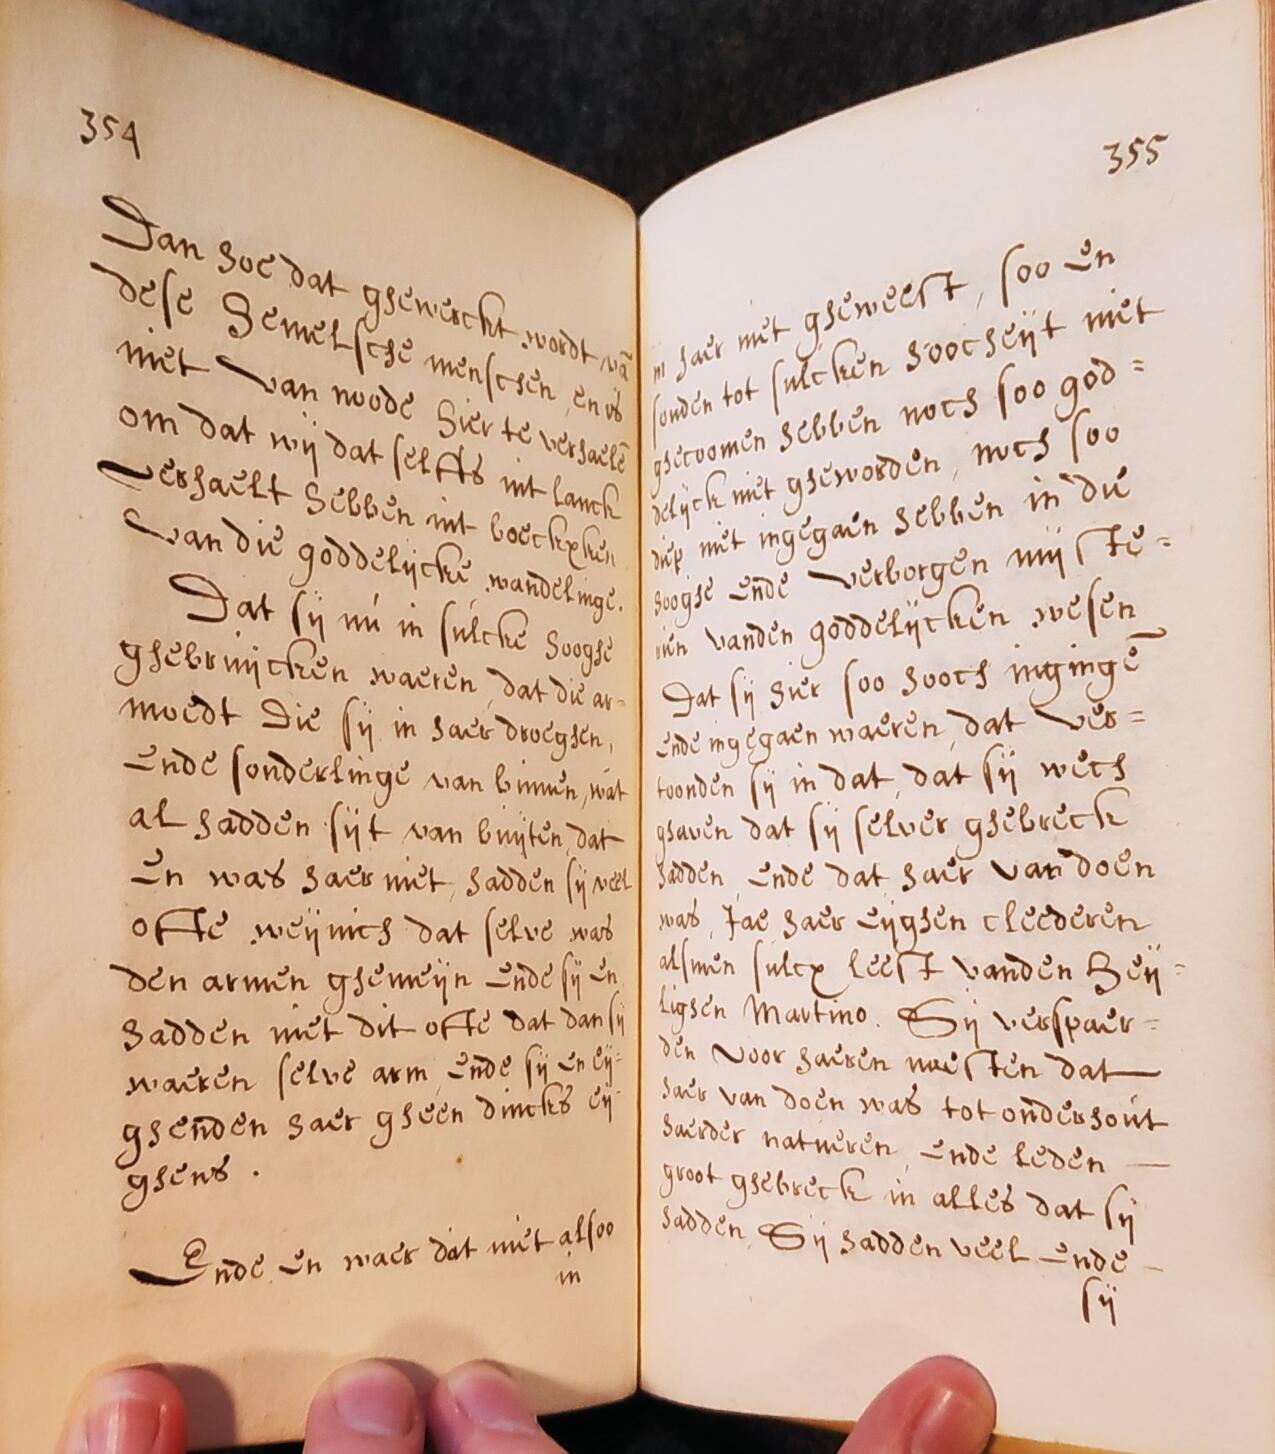 354
Dan hoe dat ghewerckt wordt vā
dese Hemelsche menschen, en is
niet van noode hier te verhaelē
om dat wij dat selffs int lanck
verhaelt hebben int boeckxken
van die goddelijcke wandelinge.
Dat sij nú in súlcke hooghe
ghebruijcken waeren, dat die ar-
moedt Die sij in haer droeghen,
Ende sonderlinge van binnen, wāt
al hadden sijt van buijten, dat
En was haer niet, hadden sij veel
ofte weijnich dat selve was
den armen ghemeijn Ende sij en
hadden niet dit ofte dat dan sij
waeren selve arm, Ende sij en eij-
ghenden haer gheen dincks eij-
ghens.
Ende en waer dat niet alsoo
in
355
in haer niet gheweest, soo en
souden tot sulcken hoocheijt niet
ghecoomen hebben noch soo god=
delijck niet gheworden, noch soo
diep niet ingegaen hebben in die
hooghe Ende verborgen mijste=
rien vanden goddelijcken wesen
Dat sij hier soo hooch ingingē
Ende ingegaen waeren, dat ver=
toonden sij in dat, dat sij wech
ghaven dat sij selver ghebreck
hadden, Ende dat haer van doen
was, Jae haer eijghen cleederen
alsmen sulcx leest vanden Heij=
lighen Martino. Sij verspaer=
den voor haeren noesten dat
haer van doen was tot onderhoút
haerder natueren, Ende leden
groot ghebreck in alles dat sij
hadden, Sij hadden veel Ende
sij